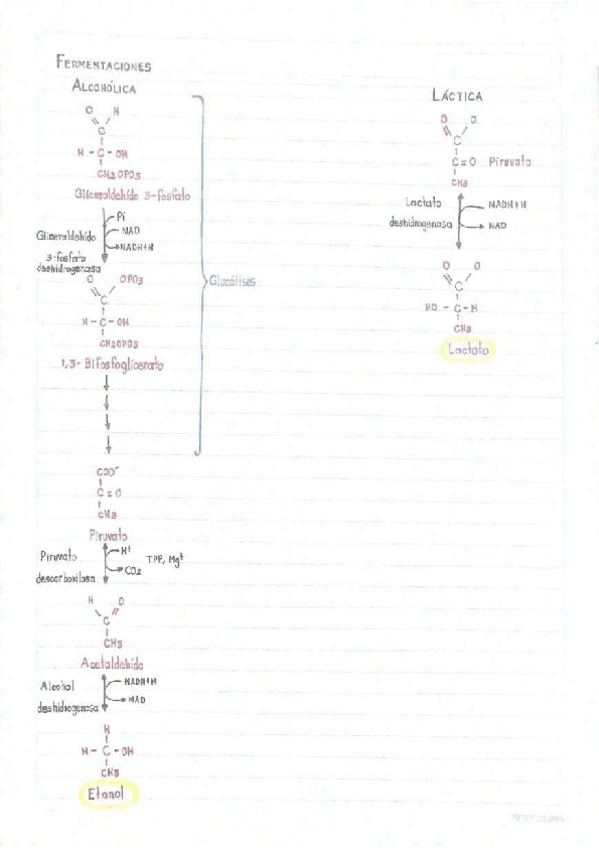 FERMENTACIONES
ALCOHÓLICA
O H
C
H - C - OH
CH2OPO3
Gliceraldehído 3-fosfato
Pi
NAD
NADH+H
Gliceraldehído
3-fosfato
deshidrogenasa
O OPO3
C
H - C - OH
CH2OPO3
1,3-Bifosfoglicerato
Glucólisis
COO-
C = O
CH3
Piruvato
Piruvato
descarboxilasa
H+
CO2
TPP, Mg+
H O
C
CH3
Acetaldehído
Alcohol
deshidrogenasa
NADH+H
NAD
H
H - C - OH
CH3
Etanol
LÁCTICA
O O
C
C = O Piruvato
CH3
Lactato
deshidrogenasa
NADH+H
NAD
O O
C
HO - C - H
CH3
Lactato